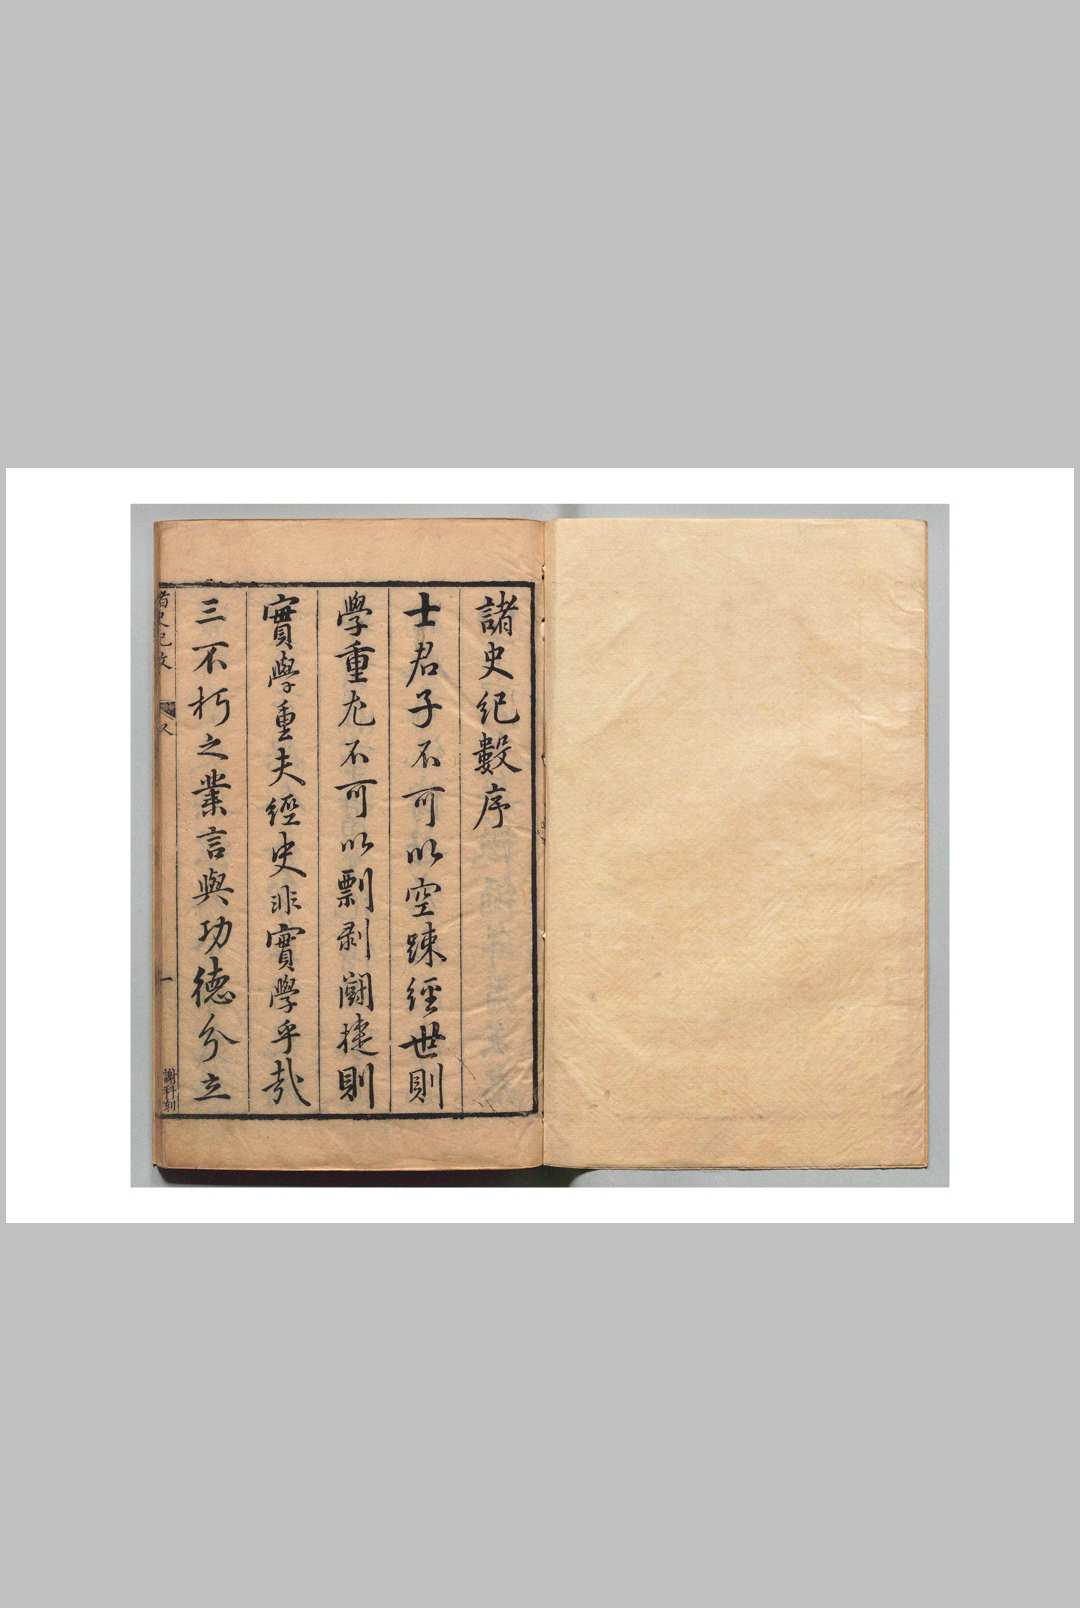 諸史紀數序
士君子不可以空踈經世則
學重尤不可以剽剥鬪捷則
實學重夫經史非實學乎哉
三不朽之業言與功德分立
諸史紀數
一
謝科刻